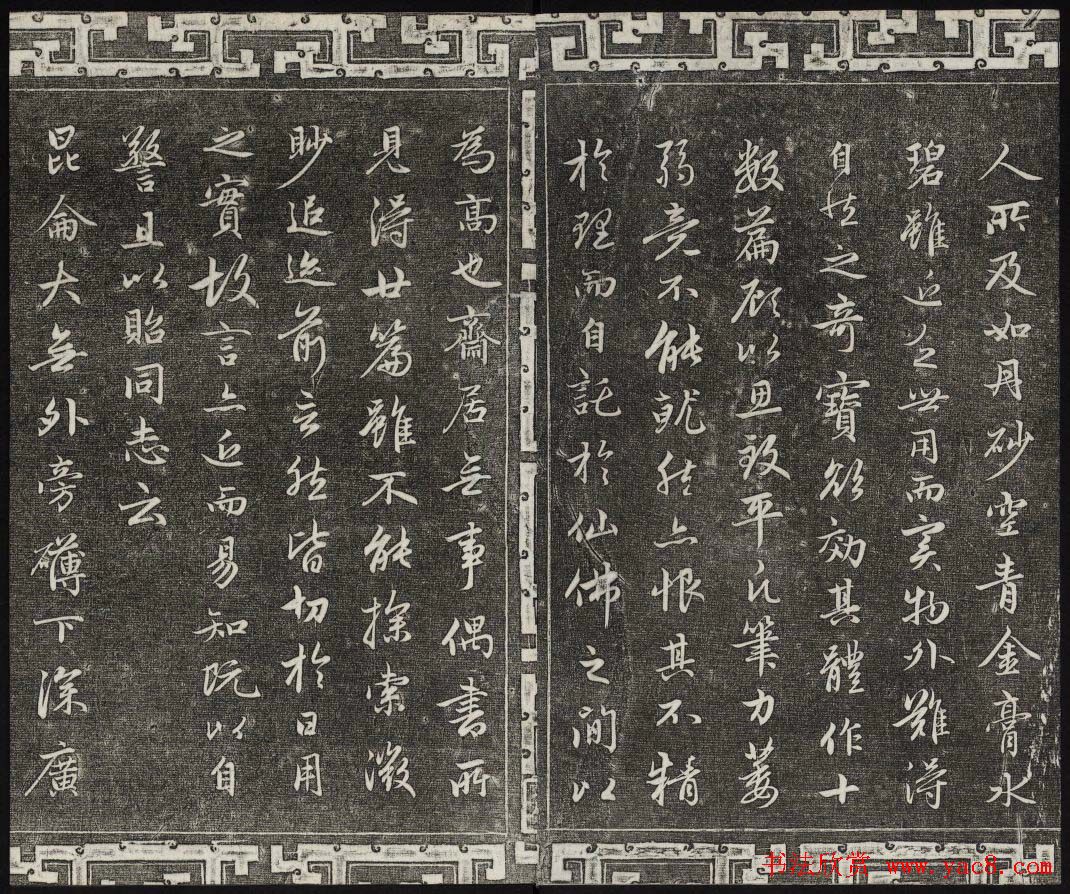 人所及如丹砂空青金膏水
碧雖近乏世用而實物外難得
自然之奇寶欲効其體作十
數篇顧以思致平凡筆力萎
弱竟不能就然亦恨其不精
於理而自託於仙佛之間以
為高也齋居無事偶書所
見得廿篇雖不能探索微
眇追迹前言然皆切於日用
之實故言亦近而易知既以自
警且以貽同志云
昆侖大無外旁礴下深廣
书法欣赏 www.yac8.com